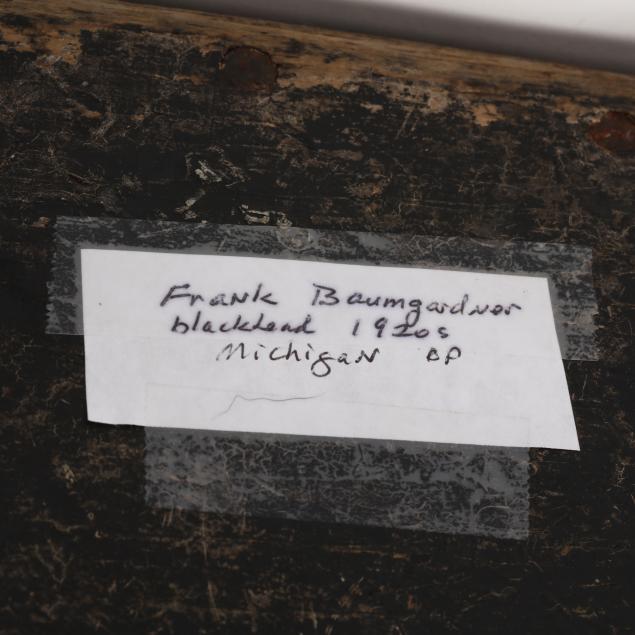 Frank Baumgardner
blackhead 1920s
Michigan OP